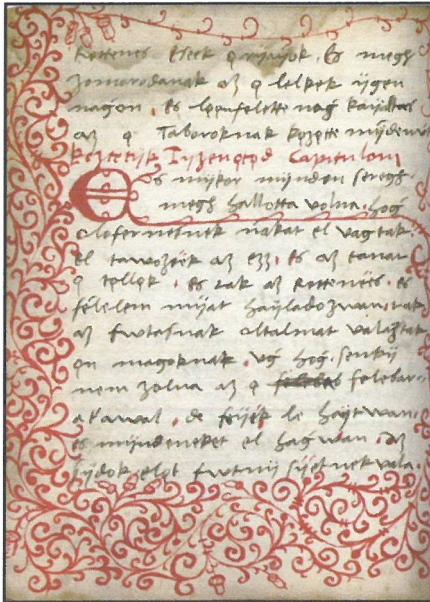 Rettenes esek ǫ rayayok. Es megh
zomorodanak az ǫ lelkek ygen
nagon. es felette nag kayaltas
az ǫ Taboroknak kǫzǫtte myndenut
keztetyk Tyzenǫtǫd Capitulom
Es mykor mynden seregh
megh hallotta volna. hog
olofernesnek nakat el vagtak.
El tawozek az ezz. es az tanac
ǫ tǫllǫk. es cak az rettenes. es
felelem myat hayladozwan. cak
az fwtasnak oltalmat valaztak
ǫn magoknak. vg hog. senky
nem zolna az ǫ felebar
atawal. de feyek le haytwan.
es myndeneket el hagwan. az
sydok elǫt fwtny syetnek vala.